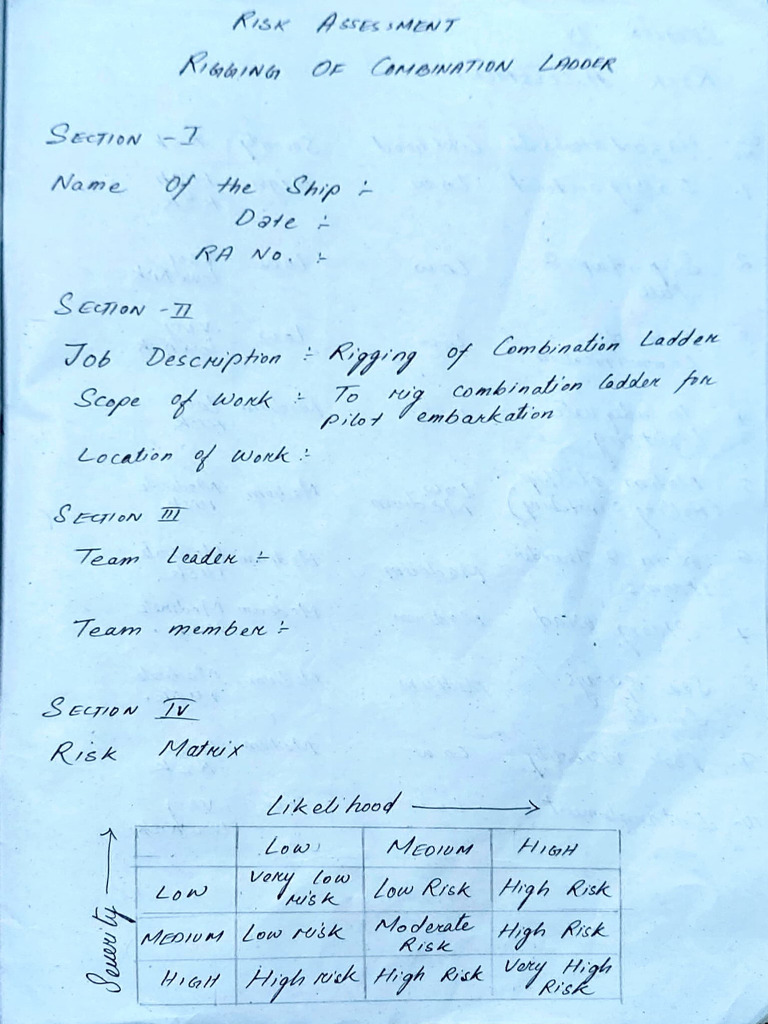 RISK ASSESSMENT
RIGGING OF COMBINATION LADDER
SECTION - I
Name Of the Ship :-
Date :-
RA No. :-
SECTION - II
Job Description :- Rigging of Combination Ladder
Scope of Work :- To rig combination ladder for
pilot embarkation
Location of Work :-
SECTION III
Team Leader :-
Team member :-
SECTION IV
Risk Matrix
Likelihood →
Severity →
LOW MEDIUM HIGH
LOW Very low risk Low Risk High Risk
MEDIUM Low risk Moderate Risk High Risk
HIGH High risk High Risk Very High Risk